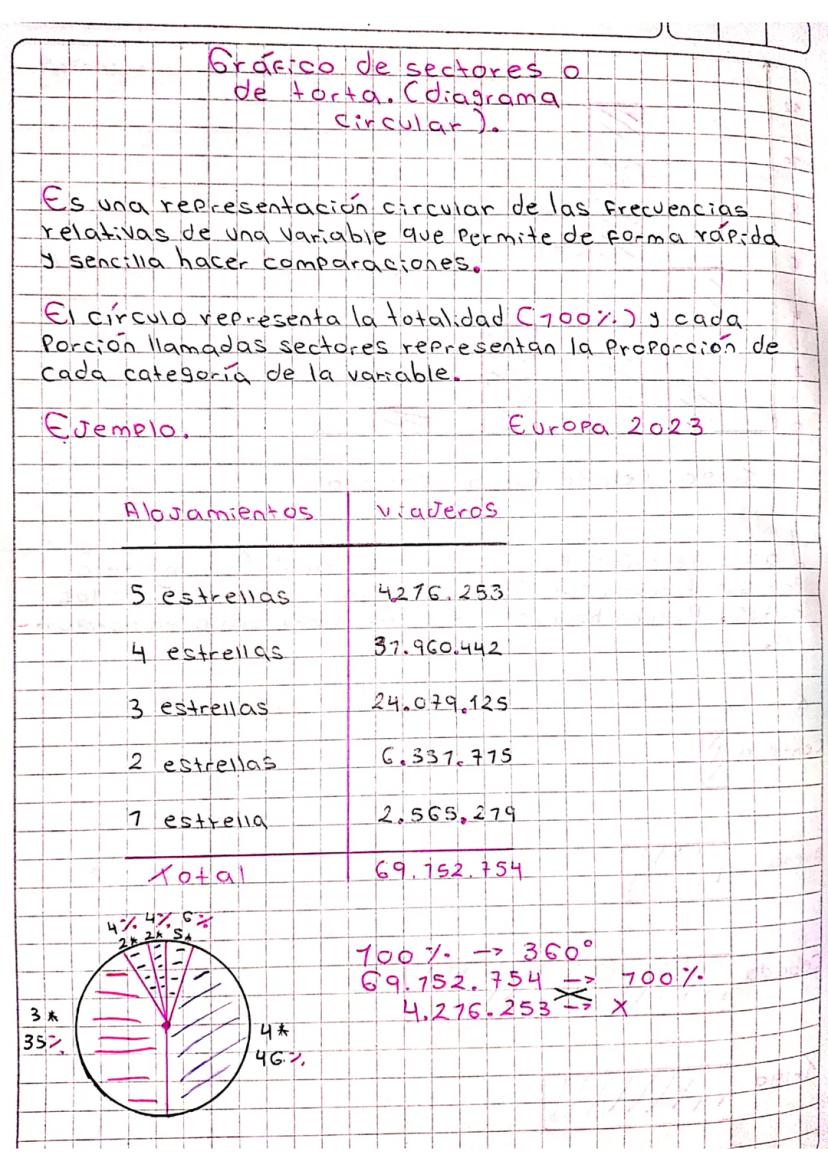 Gráfico de sectores o
de torta. (diagrama
circular).
Es una representación circular de las frecuencias
relativas de una variable que permite de forma rápida
y sencilla hacer comparaciones.
El círculo representa la totalidad (100%) y cada
Porción llamadas sectores representan la Proporción de
cada categoría de la variable.
Ejemplo. Europa 2023
Alojamientos viajeros
5 estrellas 4216.253
4 estrellas 31.960.442
3 estrellas 24.079.125
2 estrellas 6.331.715
1 estrella 2.565.219
Total 69.152.754
4% 4% 6%
2* 2* 5*
3*
35%
4*
46%
100% -> 360°
69.152.754 -> 100%
4.216.253 -> X